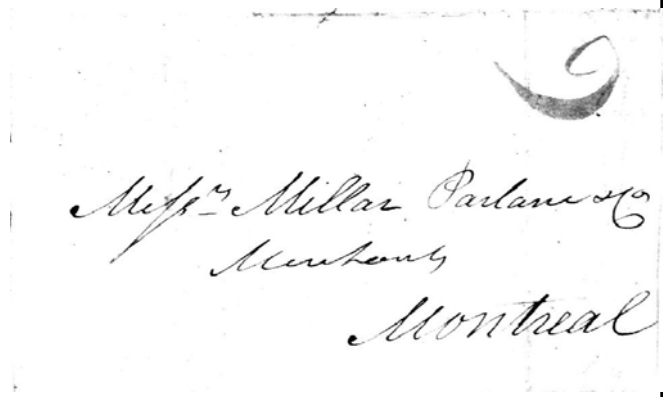 Messrs Millar Parlane & Co
Merchants
Montreal